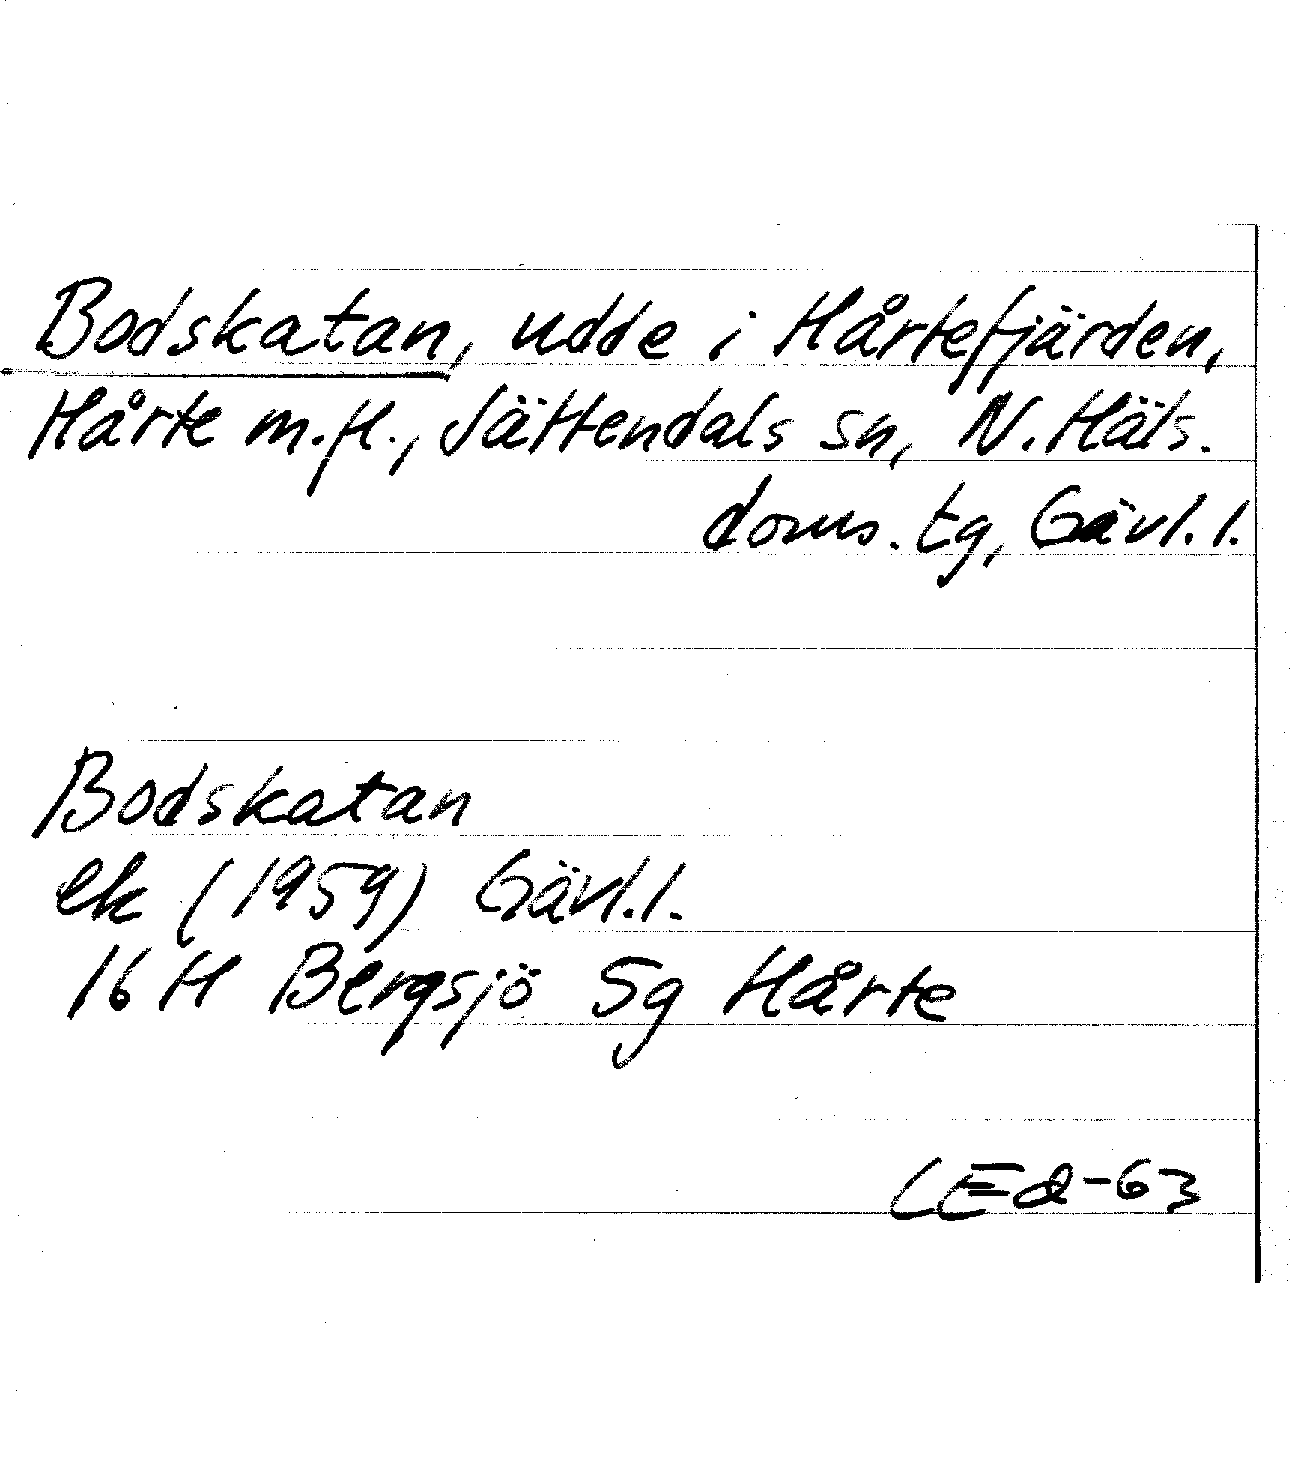 Bodskatan, udde i Hårtefjärden,
Hårte m.fl., Jättendals sn, N. Häls.
doms. tg, Gävl. l.
Bodskatan
ek (1959) Gävl. l.
16 H Bergsjö 5g Hårte
LEd-63